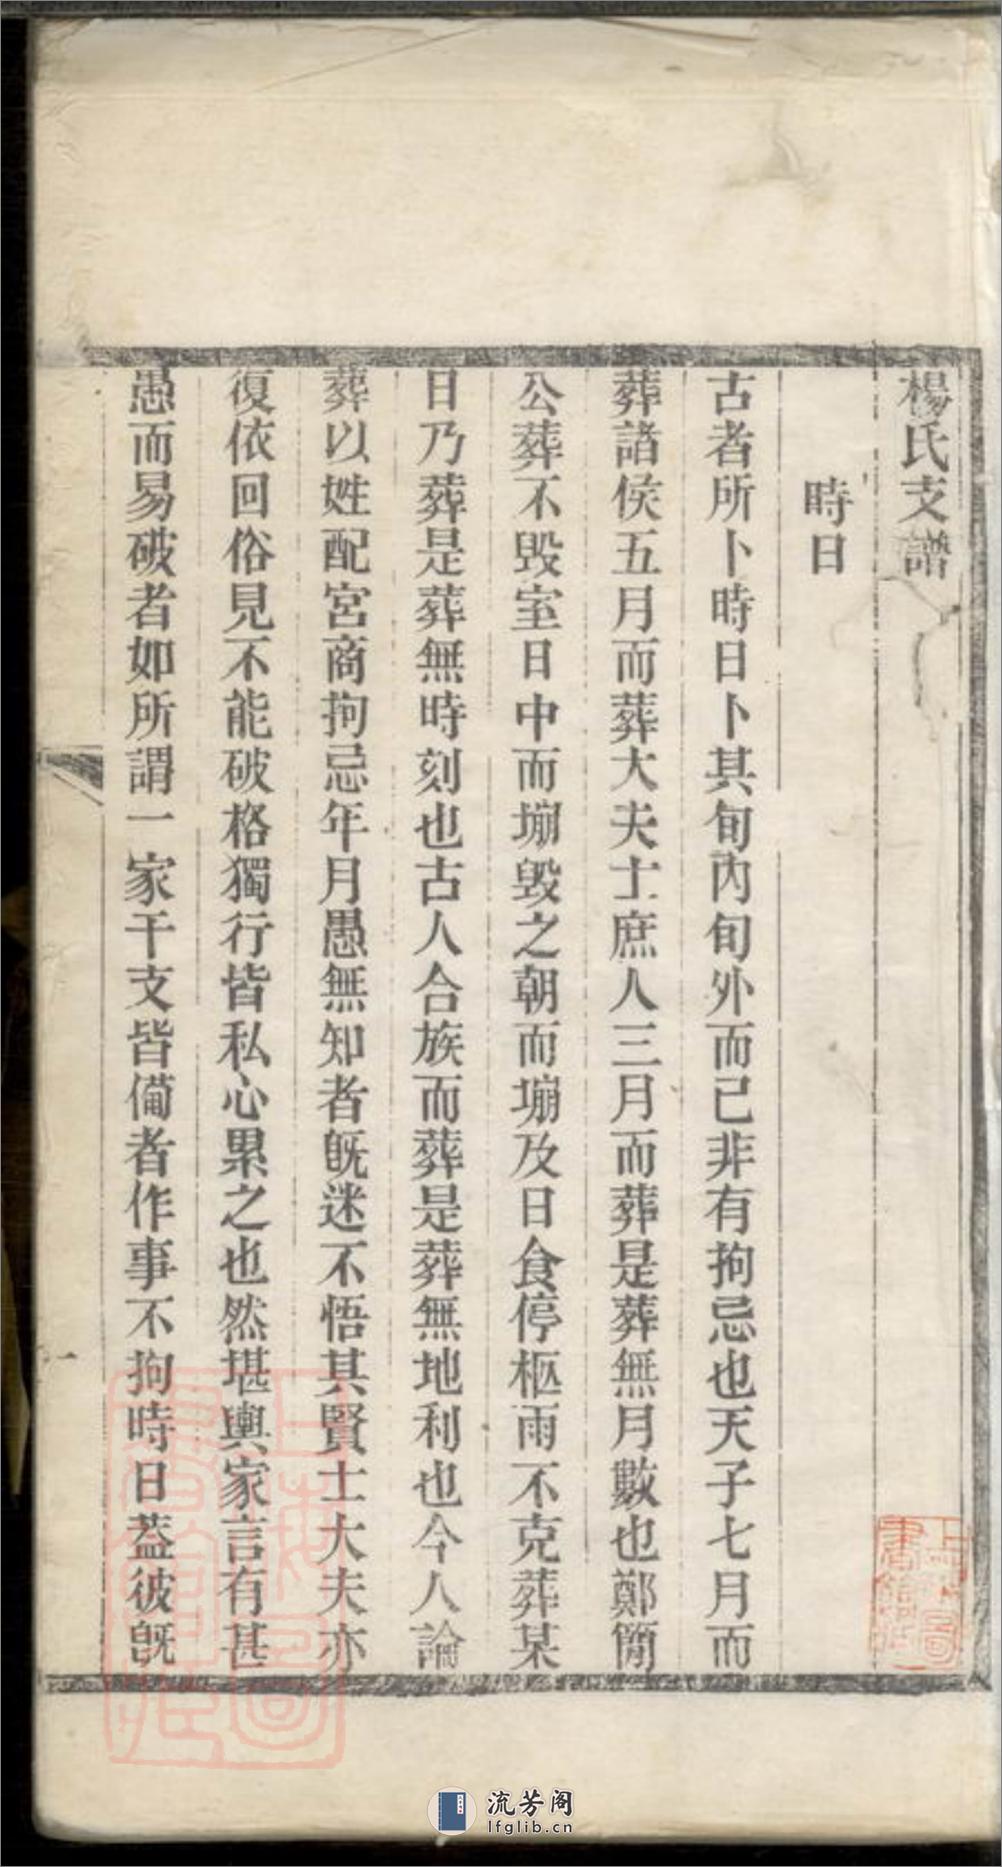 楊氏支譜
時日
古者所卜時日卜其旬內旬外而已非有拘忌也天子七月而
葬諸侯五月而葬大夫士庶人三月而葬是葬無月數也鄭簡
公葬不毀室日中而堋毀之朝而堋及日食停柩雨不克葬某
日乃葬是葬無時刻也古人合族而葬是葬無地利也今人論
葬以姓配宮商拘忌年月愚無知者旣迷不悟其賢士大夫亦
復依回俗見不能破格獨行皆私心累之也然堪輿家言有甚
愚而易破者如所謂一家干支皆備者作事不拘時日葢彼旣
流芳阁
lfglib.cn